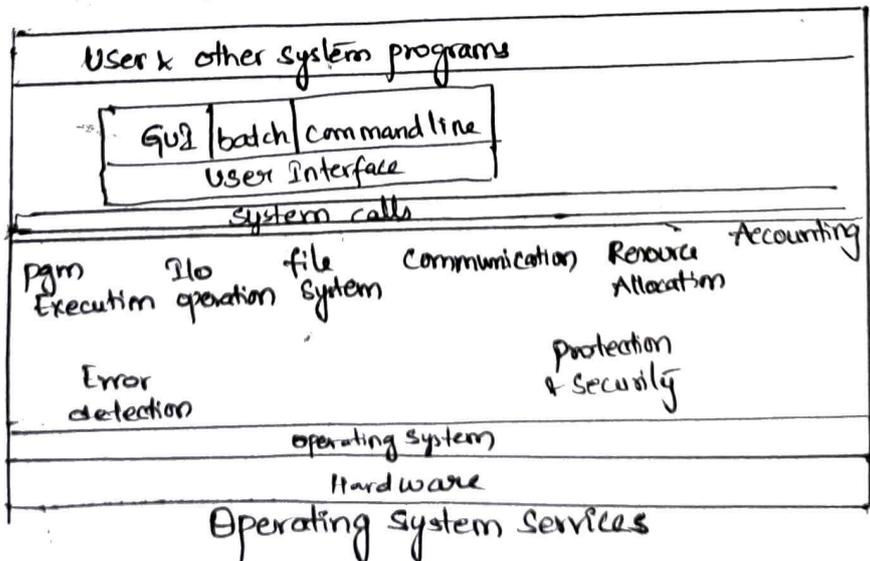 User & other system programs
GUI batch commandline
User Interface
system calls
pgm Execution
I/o operation
file system
Communication
Resource Allocation
Accounting
Error detection
protection & security
operating system
Hardware
Operating System Services